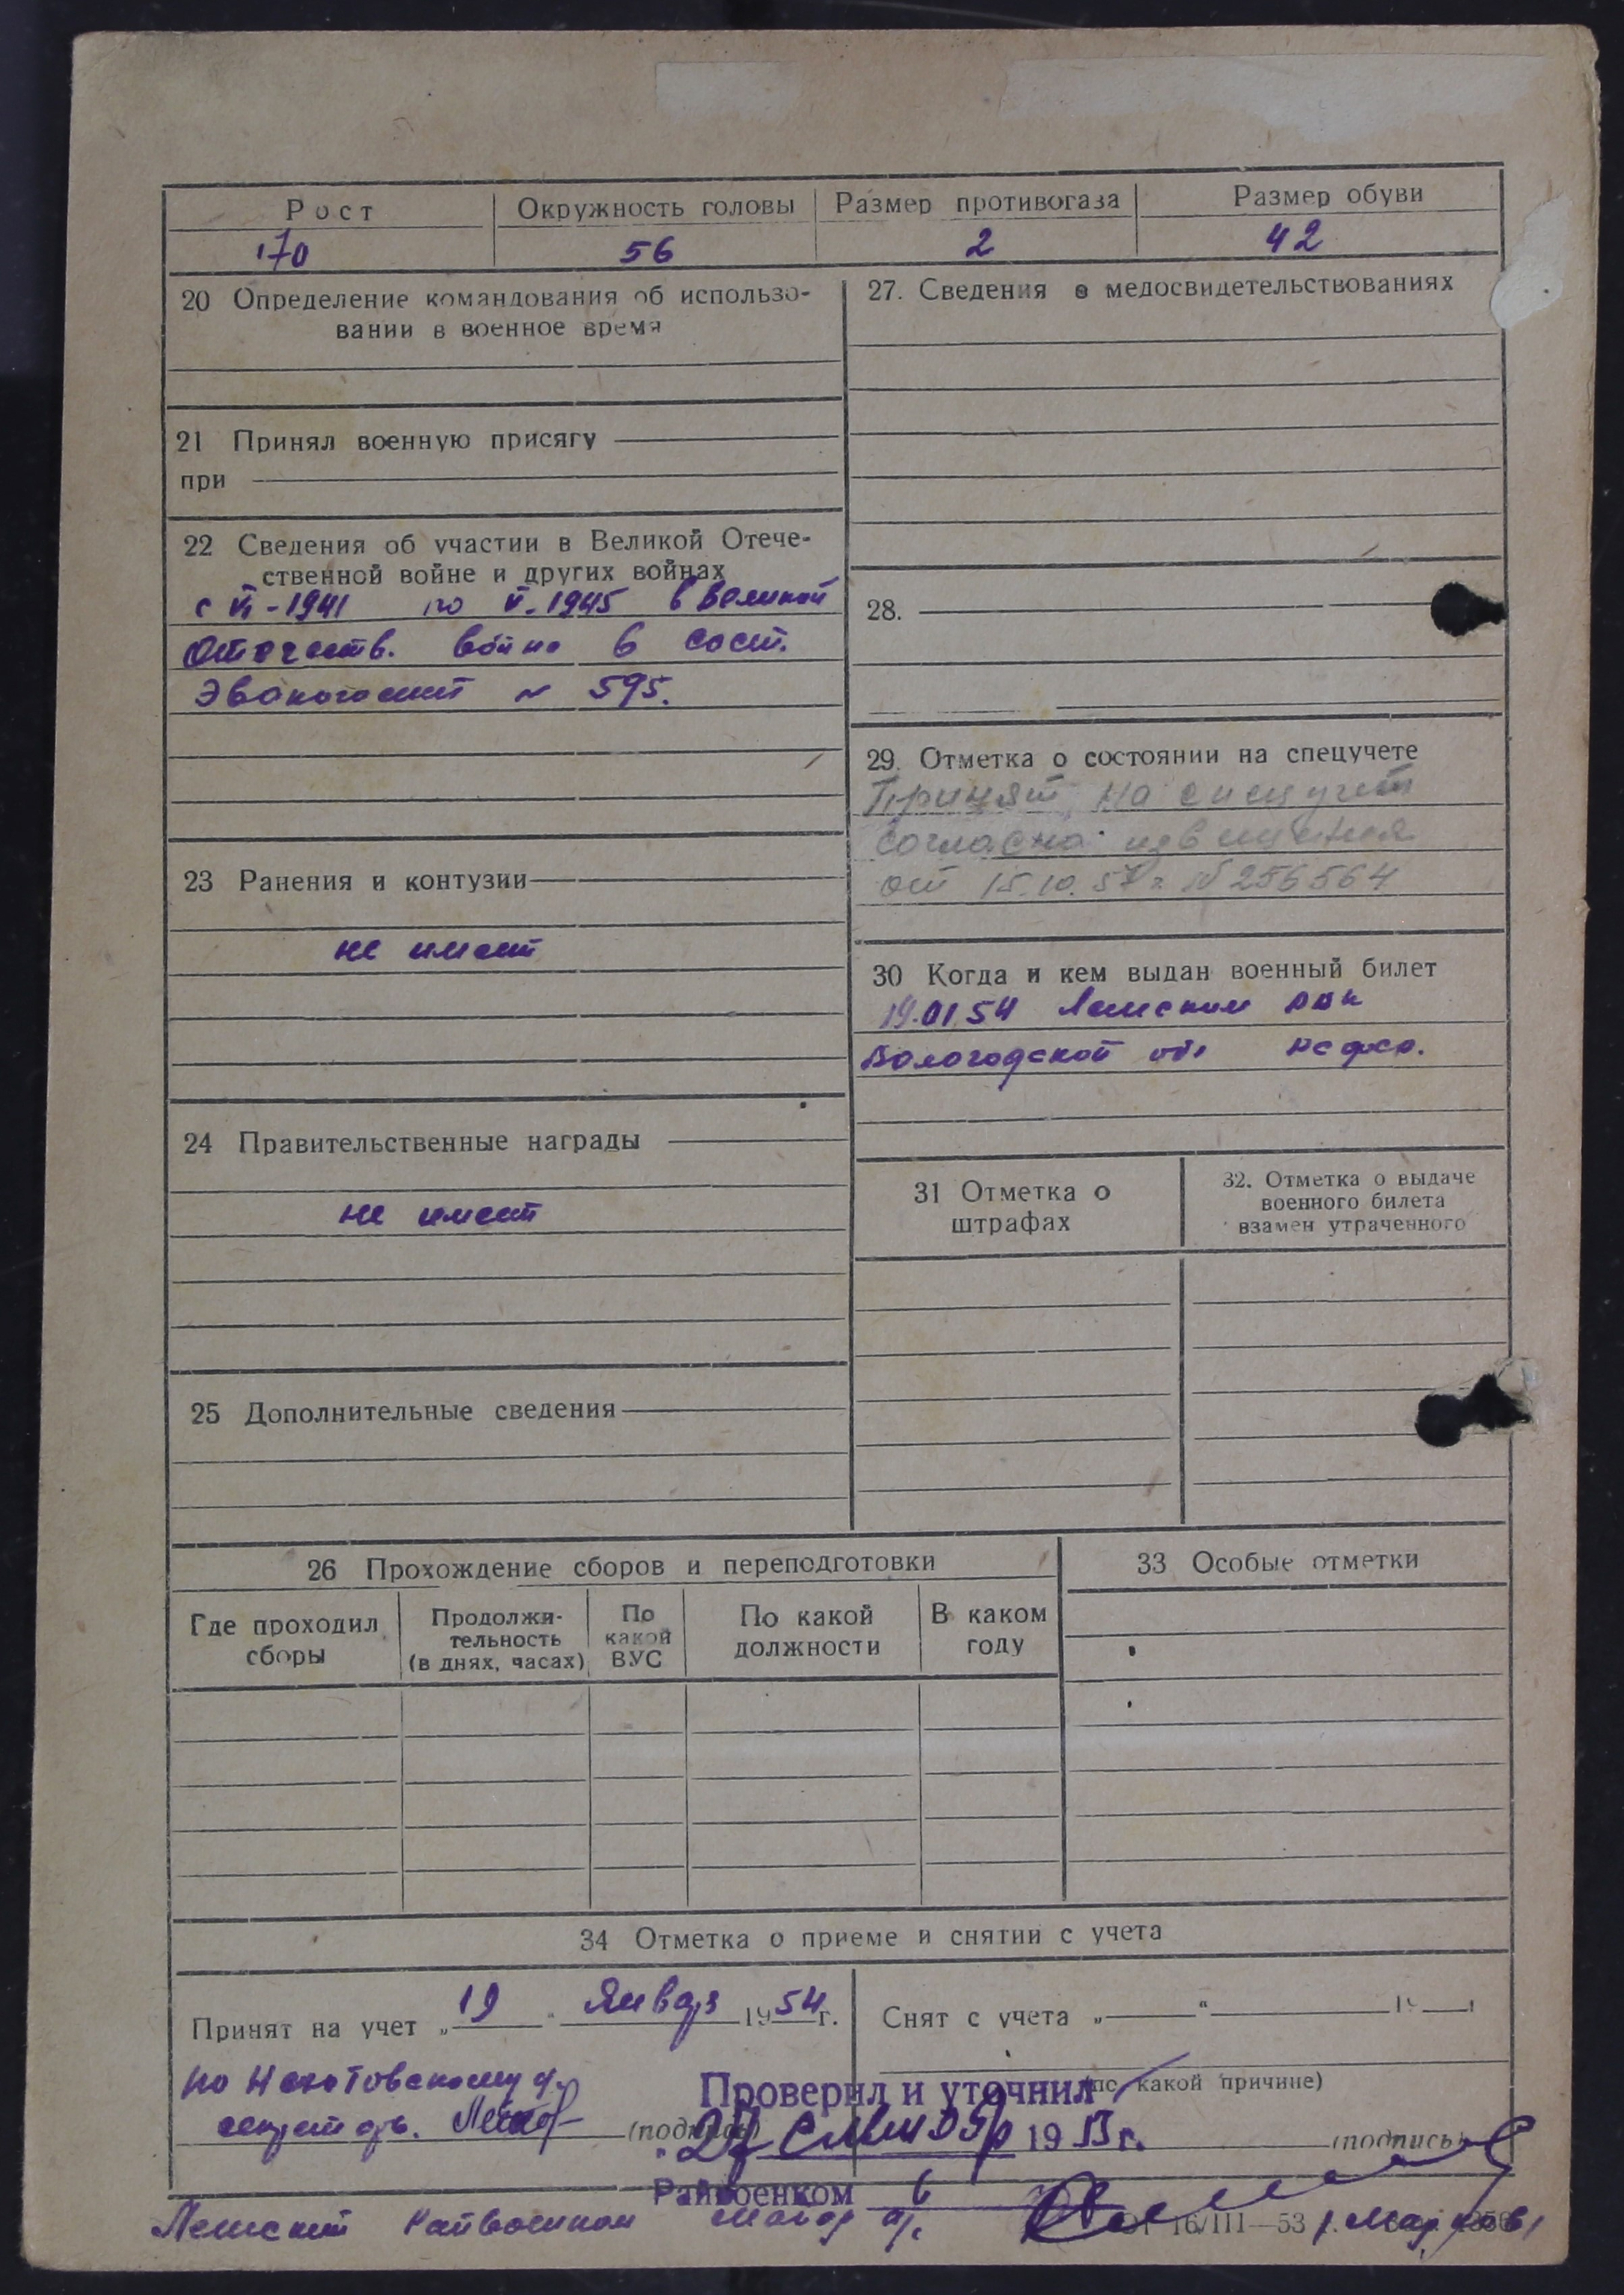 Рост Окружность головы Размер противогаза Размер обуви
170 56 2 42
20 Определение командования об использо-
вании в военное время
21 Принял военную присягу
при
22 Сведения об участии в Великой Отече-
ственной войне и других войнах
с VI-1941 по V-1945 в Великой
Отечеств. войне в сост.
Эвакогоспит № 595.
23 Ранения и контузии
не имеет
24 Правительственные награды
не имеет
25 Дополнительные сведения
27. Сведения о медосвидетельствованиях
28.
29. Отметка о состоянии на спецучете
Принят на спецучет
согласно извещения
от 15.10.57 г. № 256564
30 Когда и кем выдан военный билет
19.01.54 Лежским РВК
Вологодской обл
31 Отметка о
штрафах
32. Отметка о выдаче
военного билета
взамен утраченного
26 Прохождение сборов и переподготовки
Где проходил
сборы
Продолжи-
тельность
(в днях, часах)
По
какой
ВУС
По какой
должности
В каком
году
33 Особые отметки
34 Отметка о приеме и снятии с учета
Принят на учет „19" Января 1954 г.
по
(подпись)
Снят с учета „ " 19 г
(по какой причине)
(подпись)
Проверил и уточнил
19 г.
Райвоенком
Лежский Райвоенком майор
16/III—53